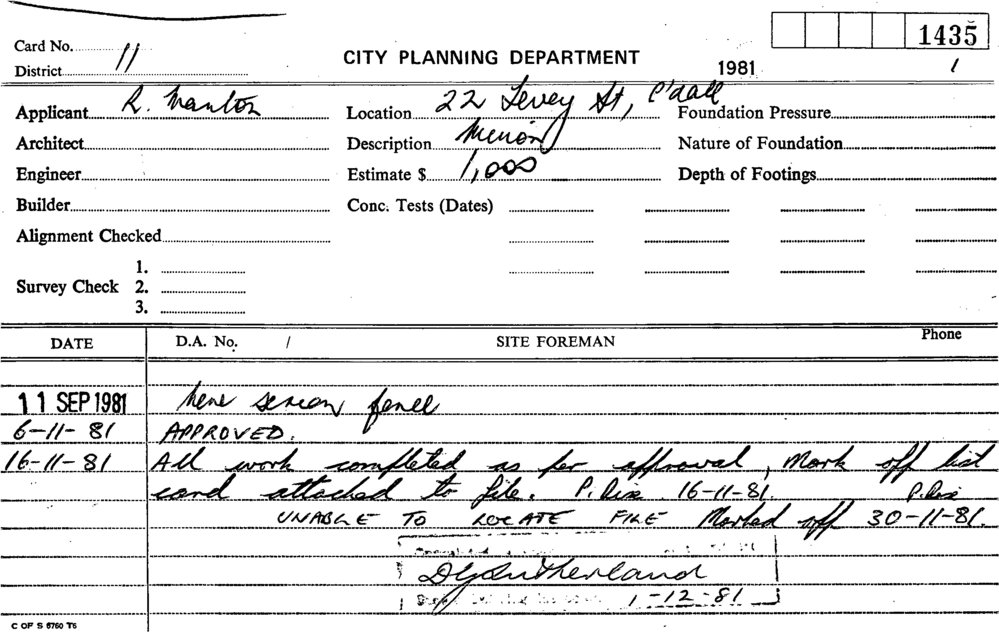 1435
Card No. 11
CITY PLANNING DEPARTMENT
District
1981 /
Applicant R. Manton
Location 22 Levey St, C'dall
Foundation Pressure
Architect
Description Minor
Nature of Foundation
Engineer
Estimate $ 1,000
Depth of Footings
Builder
Conc. Tests (Dates)
Alignment Checked
Survey Check 1.
2.
3.
DATE D.A. No. / SITE FOREMAN Phone
11 SEP 1981
6-11-81 APPROVED.
16-11-81 All work completed as per approval, Mark off list
card attached to file. P. 16-11-81. P.
UNABLE TO LOCATE FILE Marked off 30-11-81.
Sutherland
1-12-81
C OF S 6760 T5